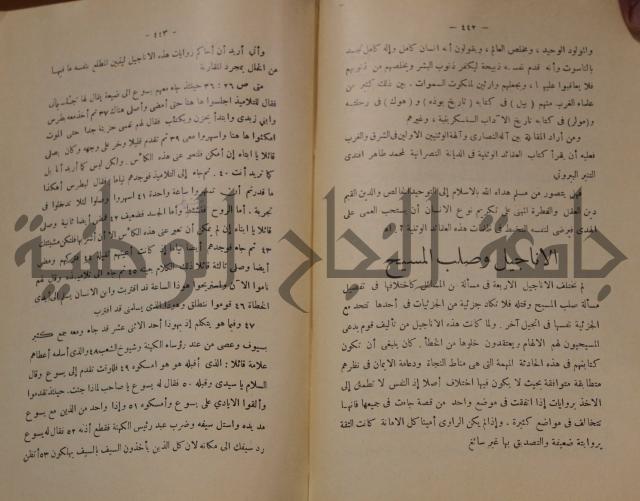 — ٤٤٢ —
والمولود الوحيد ، ومخلص العالم ، ويقولون أنه انسان كامل وإله كامل تجسد
بالناسوت وأنه قدم نفسه ذبيحة ليكفر ذنوب البشر ويخلصهم من ذنوبهم
فلا يعاقبوا عليها ، ويجعلهم وارثين لملكوت السموات . بين ذلك كثير من
علماء الغرب منهم ( بيل ) في كتابه ( تاريخ بوذه ) و ( هوك ) في رحلته
و(مولر) في كتابه تاريخ الآداب السنسكريتية ، وغيرهم
ومن أراد المقابلة بين آلهة النصارى وآلهة الوثنيين الاولين في الشرق والغرب
فعليه أن يقرأ كتاب العقائد الوثنية في الديانة النصرانية لمحمد طاهر افندي
التنير البيروتي
فهل يتصور من مسلم هداه الله بالاسلام إلى التوحيد الخالص والدين القيم
دين العقل والفطرة المبني على تكريم نوع الانسان أن يستحب العمى على
الهدى فيرضى لنفسه التخبط في ظلمات هذه العقائد الوثنية ؟
الاناجيل وصلب المسيح
لم تختلف الاناجيل الاربعة في مسألة من المسائل كاختلافها في تفصيل
مسألة صلب المسيح وقتله فلا تكاد جزئية من الجزئيات في أحدها تتحد مع
الجزئية نفسها في انجيل آخر . ولما كانت هذه الاناجيل من تأليف قوم يدعي
المسيحيون لهم الالهام ويعتقدون خلوها من الخطأ . كان ينبغي أن تكون
كتابتهم في هذه الحادثة المهمة التي هي مناط النجاة ودعامة الايمان في نظرهم
متطابقة متوافقة بحيث لا يكون فيها اختلاف أصلا إذ النفس لا تطمئن إلى
الاخذ بروايات إذا اتفقت في موضع واحد من قصة جاءت في جميعها فانها
تتخالف في مواضع كثيرة . وإذا لم يكن الراوي أمينا كل الامانة كانت الثقة
بروايته ضعيفة والتصديق بها غير سائغ
— ٤٤٣ —
وأني أريد أن أحاكم روايات هذه الاناجيل ليتبين المطلع بنفسه ما فيها
من الخلل بمجرد المقارنة
متى ص ٢٦ : ٣٦ حينئذ جاء معهم يسوع الى ضيعة يقال لها
فقال للتلاميذ اجلسوا ها هنا حتى أمضي وأصلي هناك ٣٧ ثم أخذ معه بطرس
وابني زبدى وابتدأ يحزن ويكتئب فقال لهم نفسي حزينة جدا حتى الموت
امكثوا ها هنا واسهروا معي ٣٩ ثم تقدم قليلا وخر على وجهه وكان يصلي
قائلا يا ابتاه إن أمكن فلتعبر عني هذه الكأس . ولكن ليس كما أريد أنا بل
كما تريد أنت ٤٠ . ثم جاء إلى التلاميذ فوجدهم نياما فقال لبطرس أهكذا
ما قدرتم أن تسهروا معي ساعة واحدة ٤١ اسهروا وصلوا لئلا تدخلوا في
تجربة . أما الروح فنشيط وأما الجسد فضعيف ٤٢ فمضى أيضا ثانية وصلى
قائلا يا ابتاه إن لم يمكن أن تعبر عني هذه الكأس إلا أن أشربها فلتكن مشيئتك
٤٣ ثم جاء فوجدهم أيضا نياما إذ كانت أعينهم ثقيلة ٤٤ فتركهم ومضى
أيضا وصلى ثالثة قائلا ذلك الكلام عينه ٤٥ ثم جاء الى تلاميذه وقال لهم
ناموا الآن واستريحوا هوذا الساعة قد اقتربت وابن الانسان يسلم الى أيدي
الخطاة ٤٦ قوموا ننطلق هوذا الذي يسلمني قد اقترب
٤٧ وفيما هو يتكلم إذ يهوذا أحد الاثني عشر قد جاء ومعه جمع كثير
بسيوف وعصي من عند رؤساء الكهنة وشيوخ الشعب ٤٨ والذي أسلمه أعطاهم
علامة قائلا : الذي أقبله هو هو امسكوه ٤٩ فللوقت تقدم إلى يسوع وقال
السلام يا سيدي وقبله ٥٠ فقال له يسوع يا صاحب لماذا جئت . حينئذ تقدموا
وألقوا الايادي على يسوع وأمسكوه ٥١ وإذا واحد من الذين مع يسوع
مد يده واستل سيفه وضرب عبد رئيس الكهنة فقطع أذنه ٥٢ فقال له يسوع
رد سيفك الى مكانه لان كل الذين يأخذون السيف بالسيف يهلكون ٥٣ أتظن
جامعة النجاح الوطنية